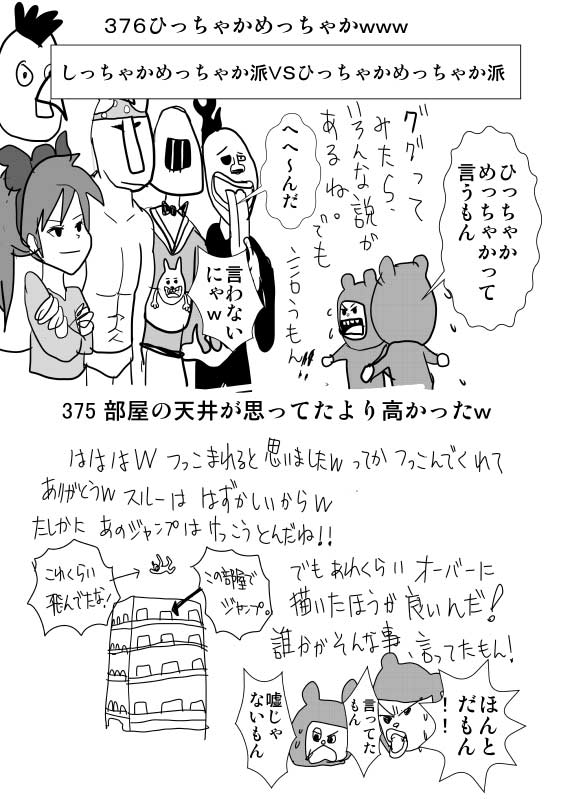 376ひっちゃかめっちゃかwww
しっちゃかめっちゃか派VSひっちゃかめっちゃか派
ひっちゃか
めっちゃかって
言うもん
ググって
みたら、
いろんな説が
あるね。でも
言うもん!!
へへ〜んだ
言わない
にゃw
375 部屋の天井が思ってたより高かったw
はははW つっこまれると思いましたw ってか つっこんでくれて
ありがとうw スルーは はずかしいからw
たしかに あのジャンプは けっこうとんだね!!
これくらい
飛んでたな!
この部屋で
ジャンプ。
でもあれくらい オーバーに
描いたほうが良いんだ!
誰かがそんな事、言ってたもん!
ほんと
だもん
!!
言ってた
もん
嘘じゃ
ないもん